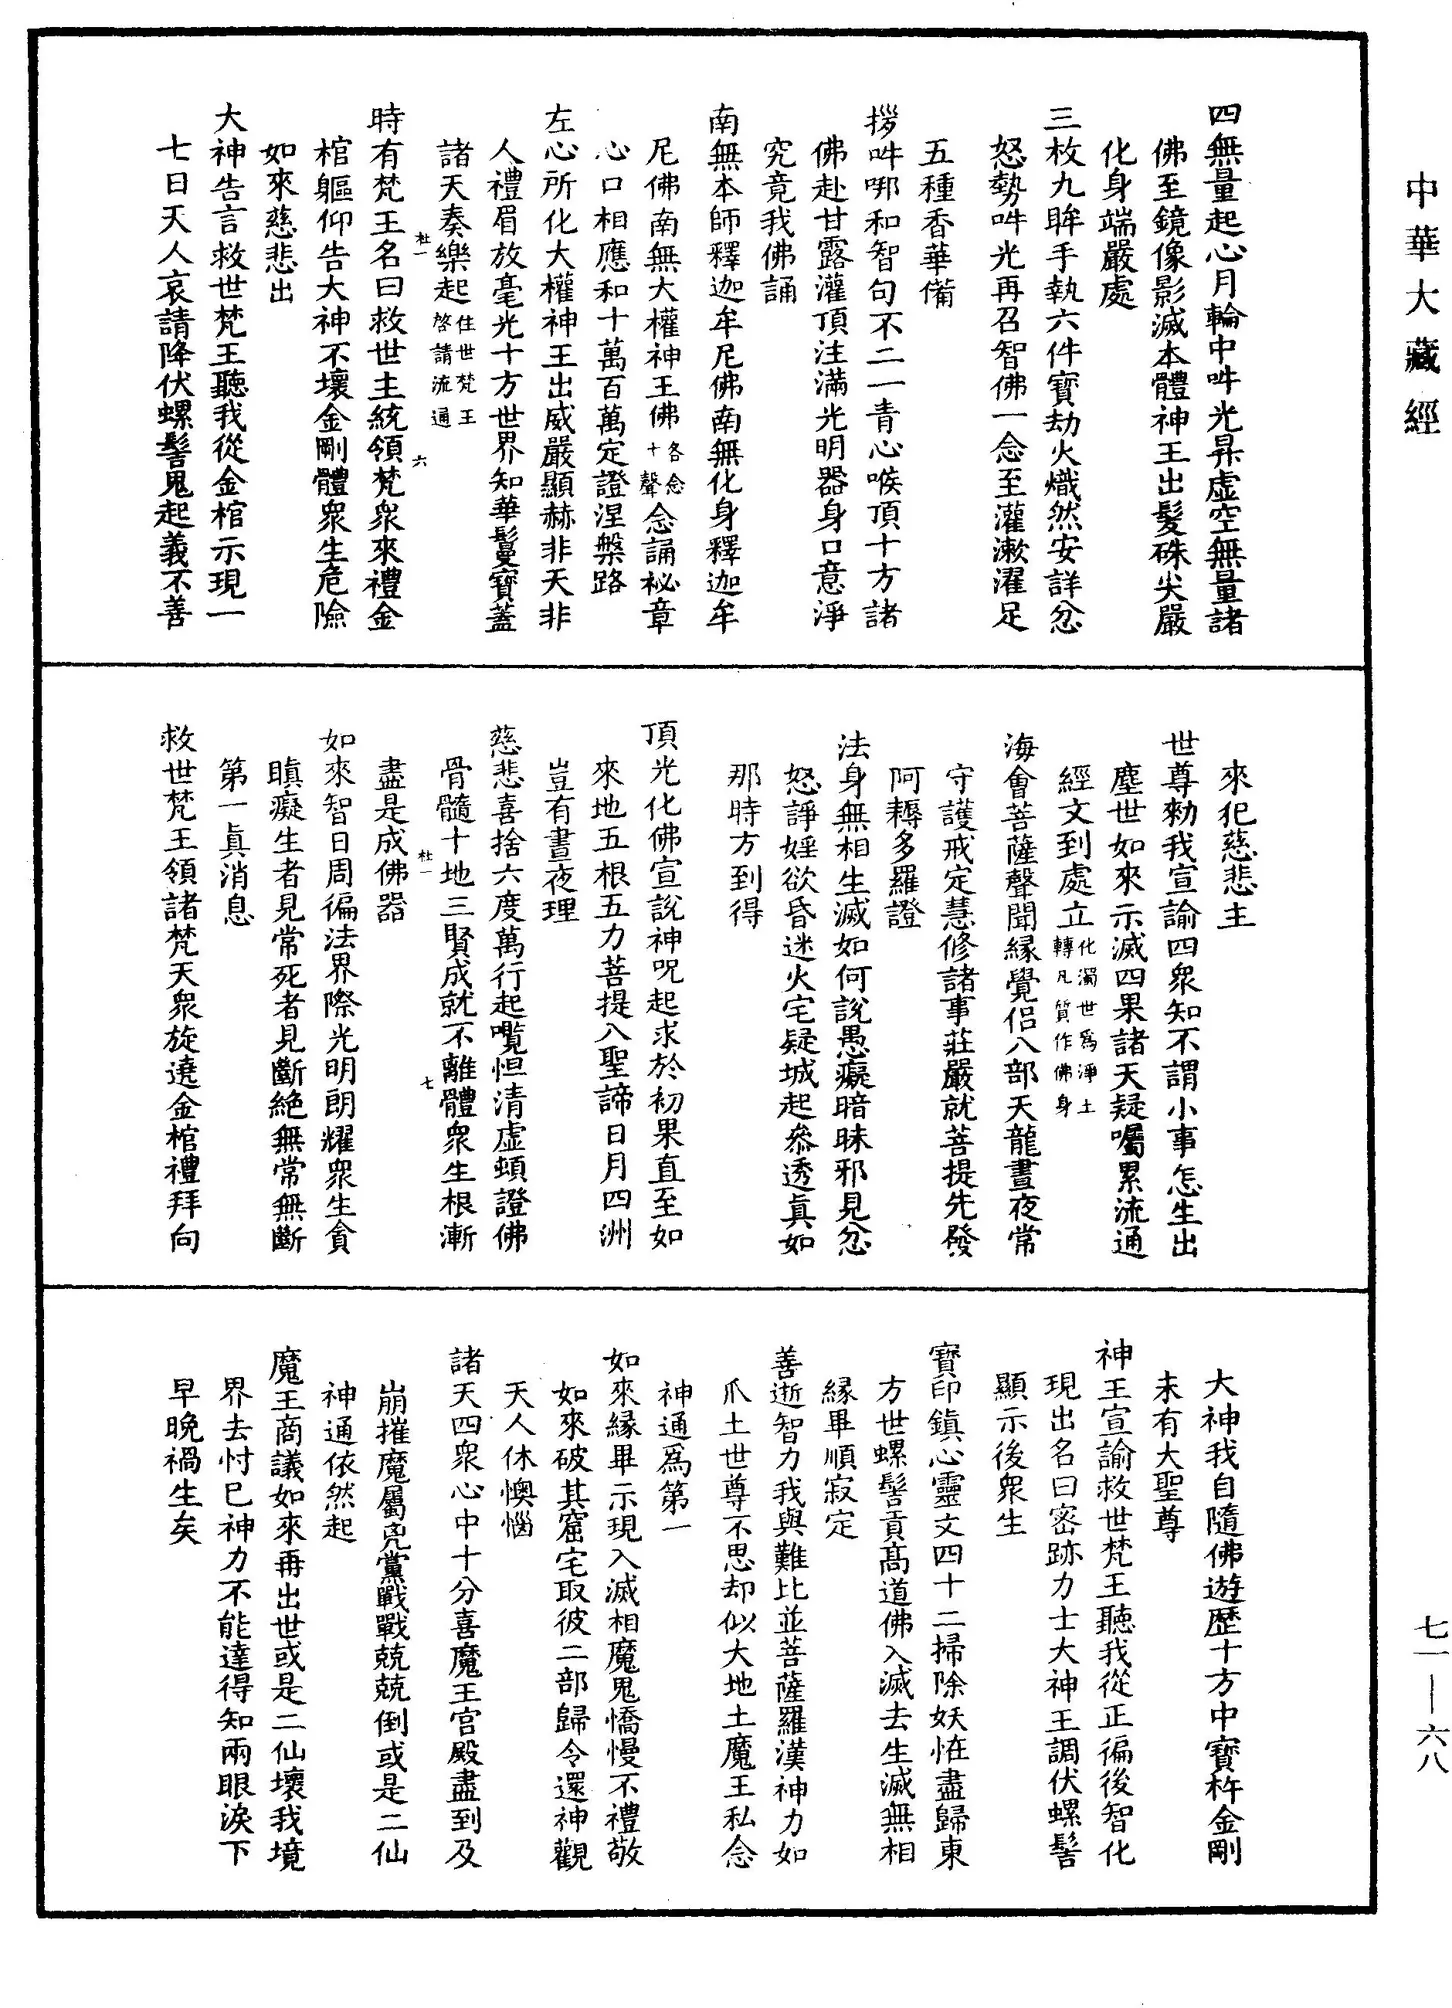 中華大藏經
四無量起心月輪中吽光昇虛空無量諸
佛至鏡像影滅本體神王出髮硃尖嚴
化身端嚴處
三枚九眸手執六件寶劫火熾然安詳忿
怒勢吽光再召智佛一念至灌漱濯足
五種香華備
拶吽哪和智句不二一青心喉頂十方諸
佛赴甘露灌頂注滿光明器身口意淨
究竟我佛誦
南無本師釋迦牟尼佛南無化身釋迦牟
尼佛南無大權神王佛各念十聲念誦祕章
心口相應和十萬百萬定證涅槃路
左心所化大權神王出威嚴顯赫非天非
人禮眉放毫光十方世界知華鬘寶蓋
諸天奏樂起住世梵王啓請流通
杜一
六
時有梵王名曰救世主統領梵衆來禮金
棺軀仰告大神不壞金剛體衆生危險
如來慈悲出
大神告言救世梵王聽我從金棺示現一
七日天人哀請降伏螺髻鬼起義不善
來犯慈悲主
世尊勑我宣諭四衆知不謂小事怎生出
塵世如來示滅四果諸天疑囑累流通
經文到處立化濁世爲淨土轉凡質作佛身
海會菩薩聲聞緣覺侶八部天龍晝夜常
守護戒定慧修諸事莊嚴就菩提先發
阿耨多羅證
法身無相生滅如何說愚癡暗昧邪見忿
怒諍婬欲昏迷火宅疑城起叅透眞如
那時方到得
頂光化佛宣說神呪起求於初果直至如
來地五根五力菩提八聖諦日月四洲
豈有晝夜理
慈悲喜捨六度萬行起嚂怛清虛頓證佛
骨髓十地三賢成就不離體衆生根漸
杜一
七
盡是成佛器
如來智日周徧法界際光明朗耀衆生貪
瞋癡生者見常死者見斷絕無常無斷
第一眞消息
救世梵王領諸梵天衆旋遶金棺禮拜向
大神我自隨佛遊歷十方中寶杵金剛
未有大聖尊
神王宣諭救世梵王聽我從正徧後智化
現出名曰密跡力士大神王調伏螺髻
顯示後衆生
寶印鎮心靈文四十二掃除妖恠盡歸東
方世螺髻貢高道佛入滅去生滅無相
緣畢順寂定
善逝智力我與難比並菩薩羅漢神力如
爪土世尊不思却似大地土魔王私念
神通爲第一
如來緣畢示現入滅相魔鬼憍慢不禮敬
如來破其窟宅取彼二部歸令還神觀
天人休懊惱
諸天四衆心中十分喜魔王宮殿盡到及
崩摧魔屬兇黨戰戰兢兢倒或是二仙
神通依然起
魔王商議如來再出世或是二仙壞我境
界去忖已神力不能達得知兩眼淚下
早晚禍生矣
七一——六八